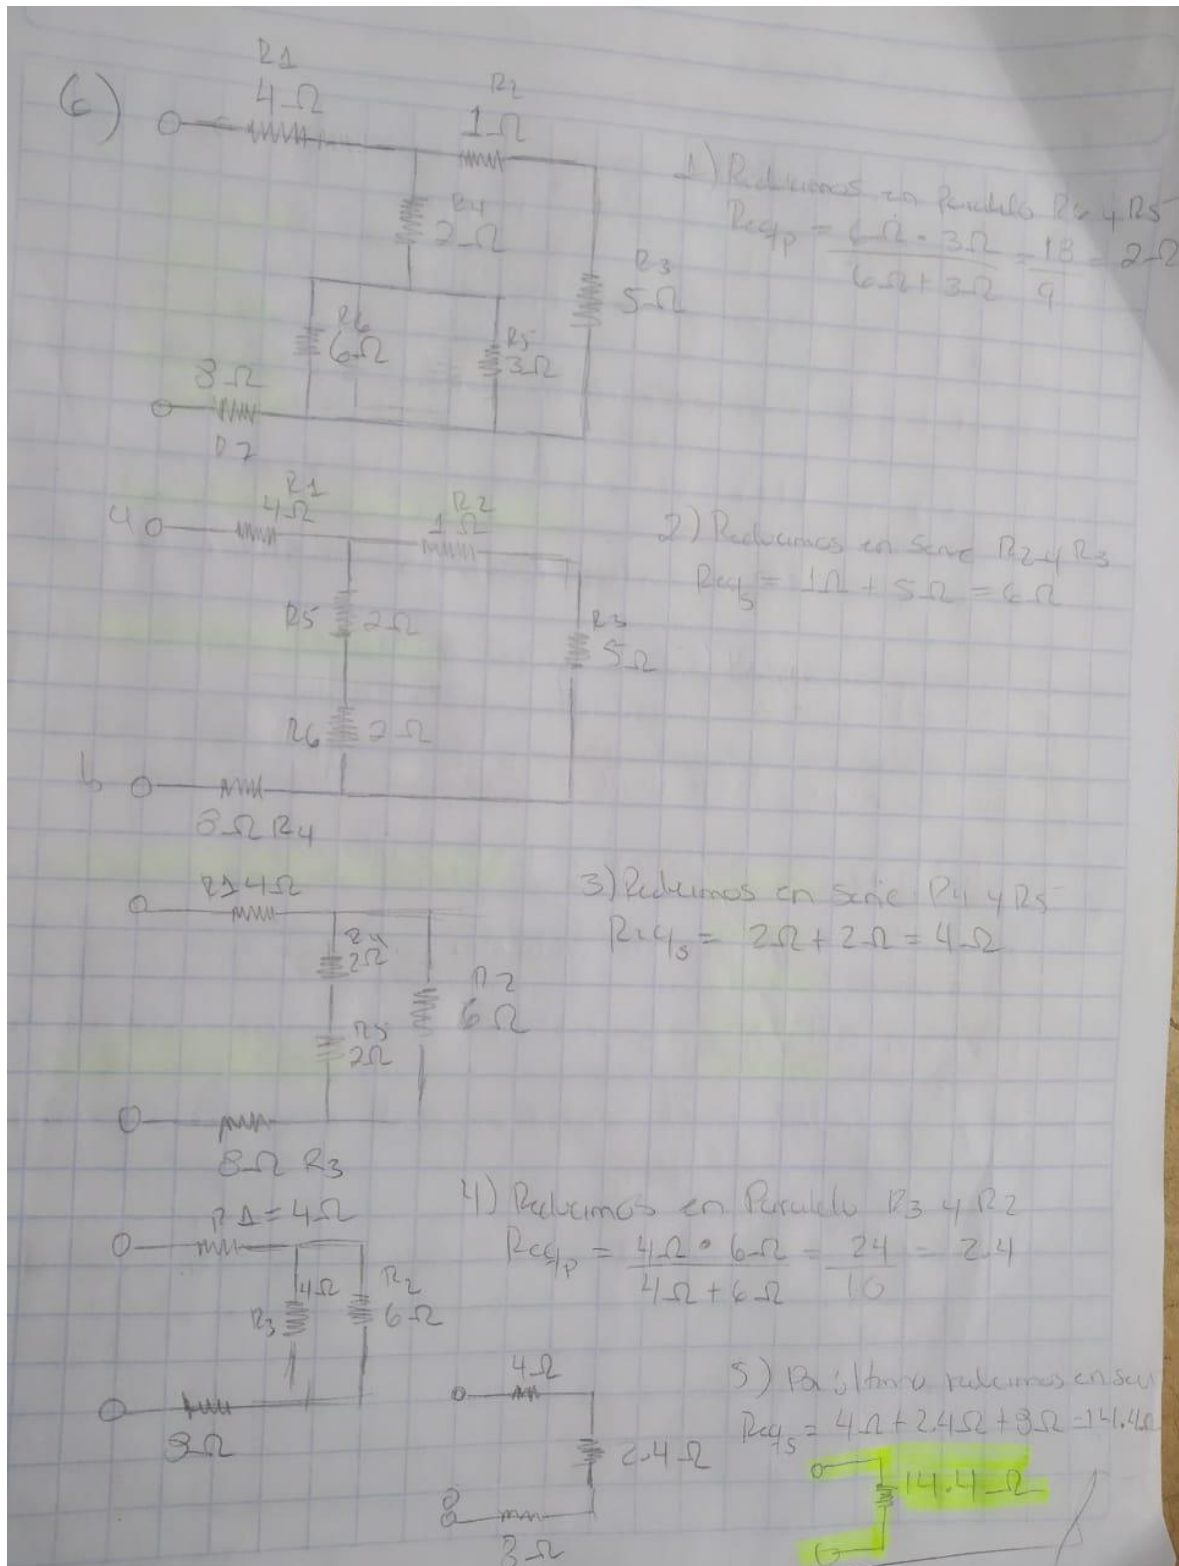 6)
R1
4Ω
R2
1Ω
R4
2Ω
R3
5Ω
R6
6Ω
R5
3Ω
8Ω
R7
1) Reducimos en Paralelo R6 y R5
Reqp = 6Ω · 3Ω / 6Ω + 3Ω = 18 / 9 = 2Ω
a
R1
4Ω
R2
1Ω
R5 2Ω
R3
5Ω
R6 2Ω
b
8Ω R4
2) Reducimos en Serie R2 y R3
Reqs = 1Ω + 5Ω = 6Ω
R1 4Ω
R4
2Ω
R2
6Ω
R5
2Ω
8Ω R3
3) Reducimos en Serie R4 y R5
Reqs = 2Ω + 2Ω = 4Ω
R1 = 4Ω
4Ω
R3
R2
6Ω
8Ω
4) Reducimos en Paralelo R3 y R2
Reqp = 4Ω · 6Ω / 4Ω + 6Ω = 24 / 10 = 2.4
4Ω
2.4Ω
8Ω
5) Por último reducimos en
Reqs = 4Ω + 2.4Ω + 8Ω = 14.4Ω
14.4Ω